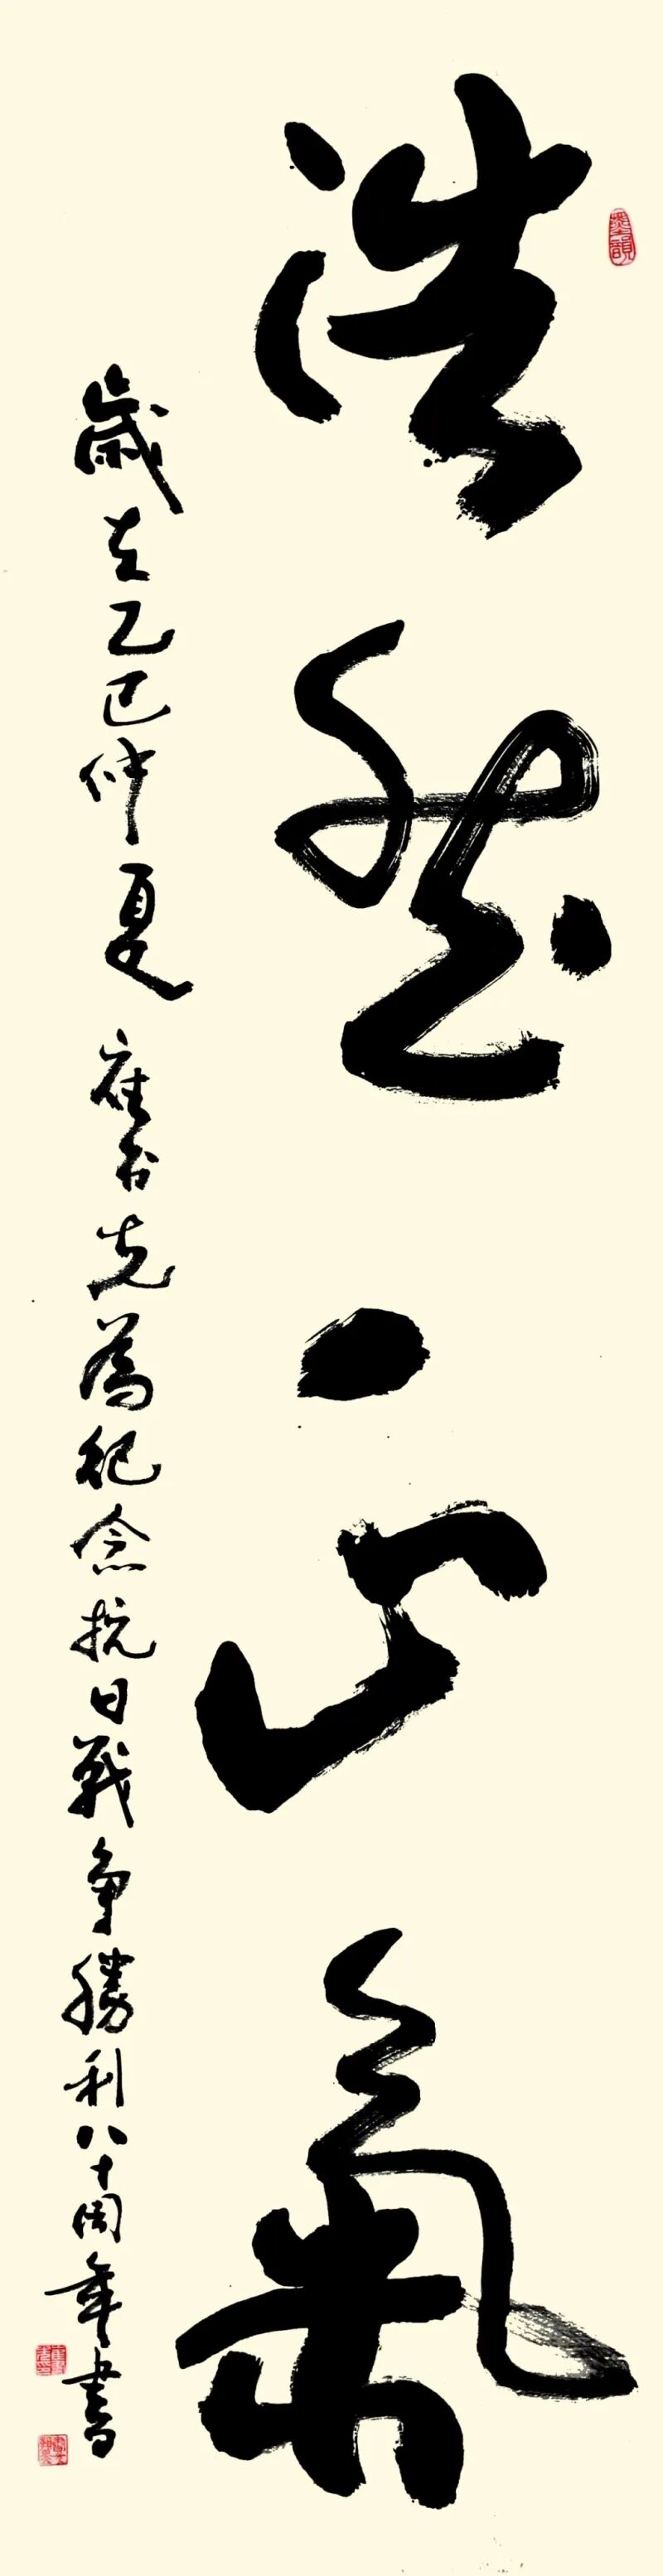 浩然正氣
歲在乙巳仲夏崔書先為紀念抗日戰爭勝利八十周年書
墨韻